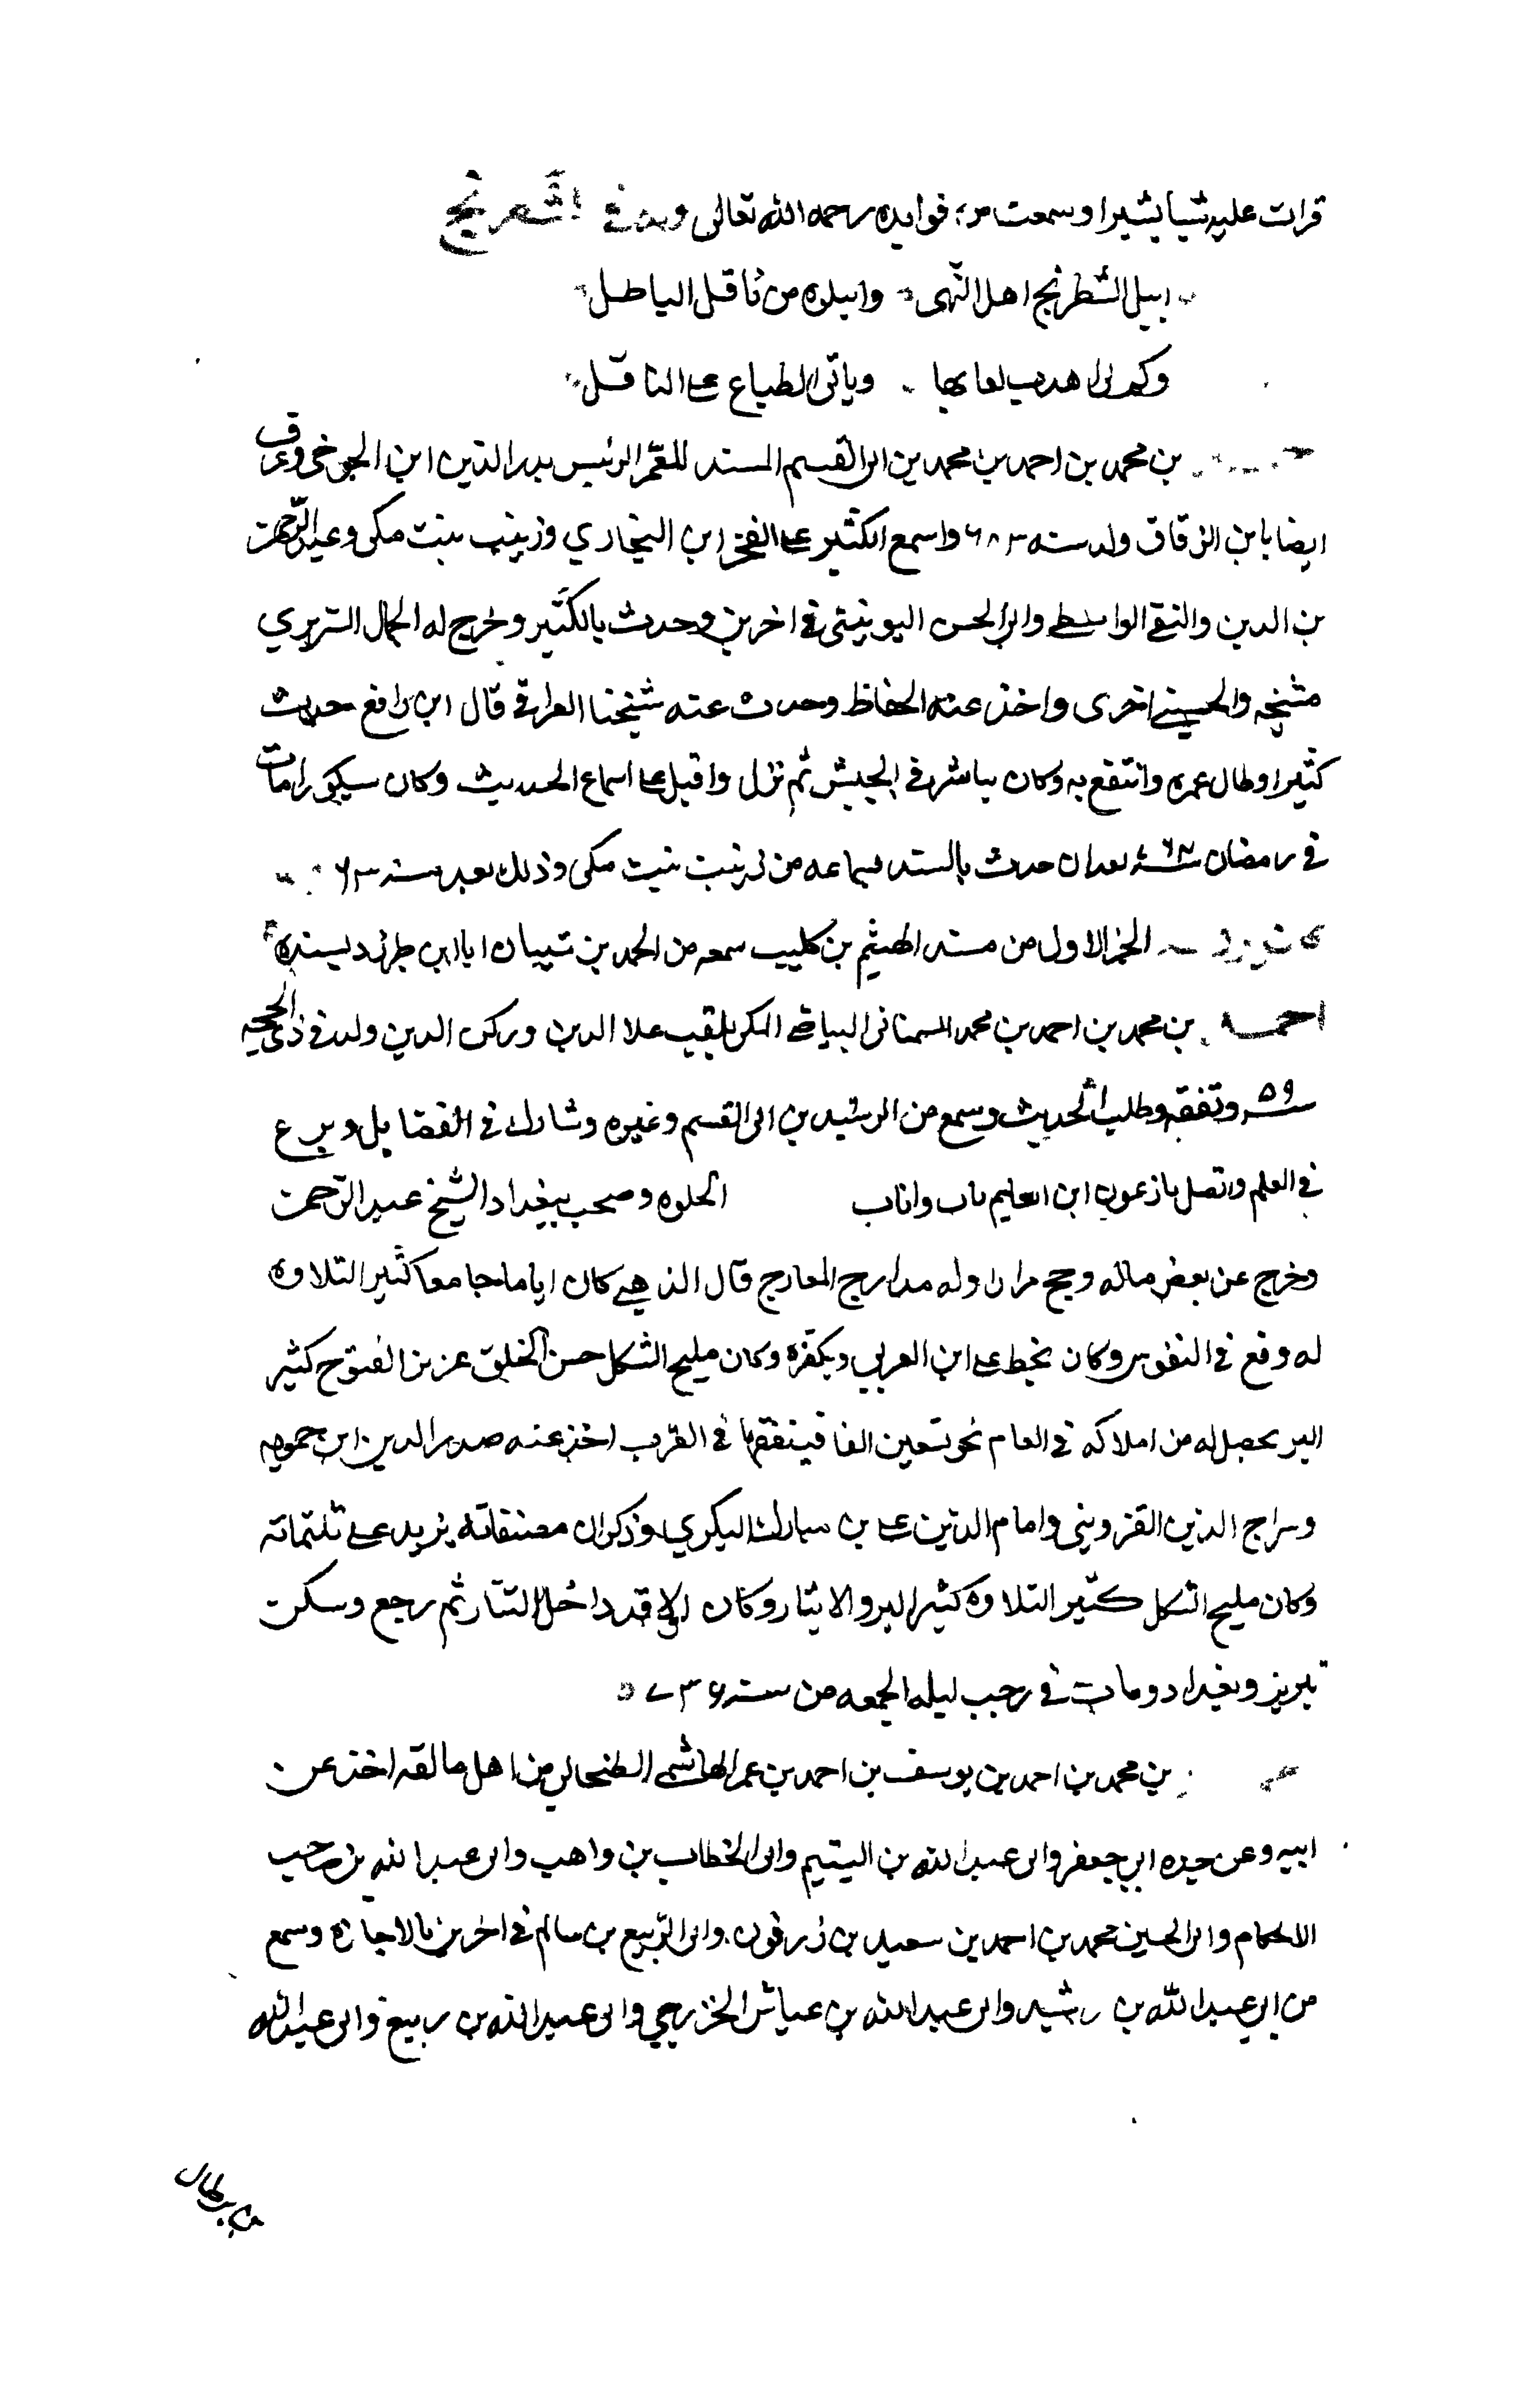 قرات عليه شيا يسيرا وسمعت من فوايده رحمه الله تعالى وله في الشطرنج
اميل لشطرنج اهل النهى واسلوه من ناقل الباطل
وكم لي اهذب لعابها وياتى الطباع على الناقل
بن محمد بن احمد بن محمد بن ابى القسم المسند المعمر الرئيس بدر الدين ابن الجوخى وعرف
ايضا بابن الزقاق ولد سنه ٦٨٣ واسمع الكثير على الفخر ابن البخاري وزينب بنت مكى وعبد الرحمن
بن الدين والتقى الواسطى وابى الحسن اليونينى فى اخرين وحدث بالكثير وخرج له الجمال السرمري
مشيخه والحسينى اخرى واخذ عنه الحفاظ وحدث عنه شيخنا العراقى قال ابن رافع حدث
كثيرا وطال عمره وانتفع به وكان يباشر فى الجيش ثم نزل واقبل على اسماع الحديث وكان مات
فى رمضان سنة ٧٦٤ بعد ان حدث بالمسند بسماعه من زينب بنت مكى وذلك بعد سنه ٦٣
الجز الاول من مسند الهيثم بن كليب سمعه من احمد بن شيبان انا ابن طبرزد بسنده
احمد بن محمد بن احمد بن محمد السمنانى البياضى المكى يلقب علا الدين وركن الدين ولد فى ذى الحجه
سنة ٥٩ وتفقه وطلب الحديث وسمع من الرشيد بن ابى القسم وغيره وشارك فى الفضايل وبرع
فى العلم واتصل بارغون ابن ابغا ثم تاب واناب الخلوه وصحب ببغداد الشيخ عبد الرحمن
وخرج عن بعض ماله وحج مرارا وله مدارج المعارج قال الذهبى كان اماما جامعا كثير التلاوه
له وقع فى النفوس وكان يحط على ابن العربي ويكفره وكان مليح الشكل حسن الخلق عزيز الفتوح كثير
البر يحصل له من املاكه فى العام نحو تسعين الفا فينفقها فى القرب اخذ عنه صدر الدين ابن حمويه
وسراج الدين القزوينى وامام الدين على بن مبارك البكري وذكر ان مصنفاته يزيد على ثلثمائه
وكان مليح الشكل كثير التلاوه كثير البر والايثار وكان اولا قد داخل التتار ثم رجع وسكن
تبريز وبغداد ومات فى رجب ليله الجمعه من سنه ٧٣٦
بن محمد بن احمد بن يوسف بن احمد بن عمر الهاشمى الطنجالى من اهل مالقه اخذ عن
ابيه وعن جده ابي جعفر وابى عبد الله بن اليتيم وابى الخطاب بن واجب وابى عبد الله بن صاحب
الاحكام وابى الحسين محمد بن احمد بن سعيد بن زرقون وابى الربيع بن سالم فى اخرين بالاجازه وسمع
من ابي عبد الله بن رشيد وابى عبد الله بن عياش الخزرجي وابى عبد الله بن ربيع وابى عبد الله
بن بطال